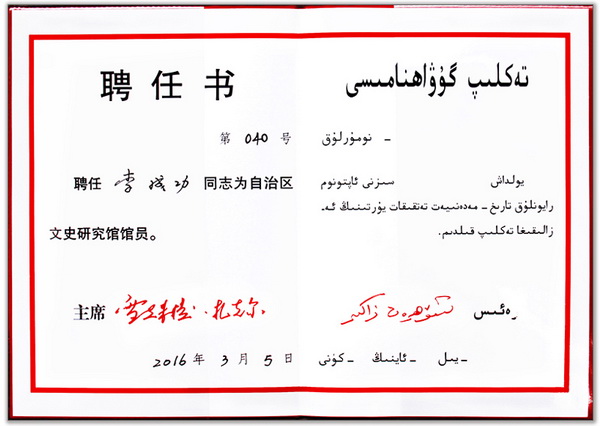 聘任书
第 040 号
聘任 李成功 同志为自治区
文史研究馆馆员。
主席 雪克来提·扎克尔
2016 年 3 月 5 日
تەكلىپ گۇۋاھنامىسى
ـ نومۇرلۇق
يولداش سىزنى ئاپتونوم
رايونلۇق تارىخ ـ مەدەنىيەت تەتقىقات يۇرتىنىڭ ئە-
زالىقىغا تەكلىپ قىلدىم.
رەئىس شۆھرەت زاكىر
ـ يىل ـ ئاينىڭ ـ كۈنى